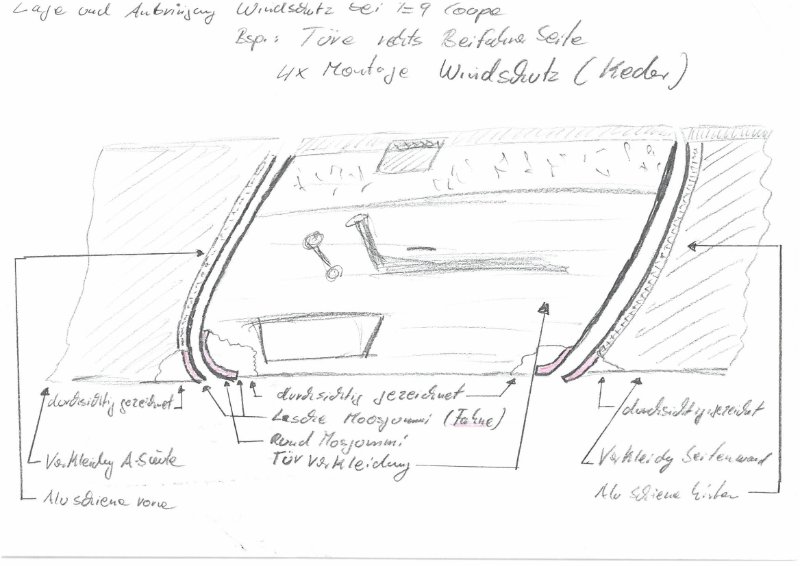 Lage und Anbringung Windschutz bei E9 Coupe
Bsp.: Türe rechts Beifahrer Seite
4x Montage Windschutz (Keder)
durchsichtig gezeichnet
durchsichtig gezeichnet
durchsichtig gezeichnet
Lasche Moosgummi (Fahne)
Rund Mosgummi
Tür Verkleidung
Verkleidg A-Säule
Verkleidg Seitenwand
Alu schiene vorne
Alu schiene hinten